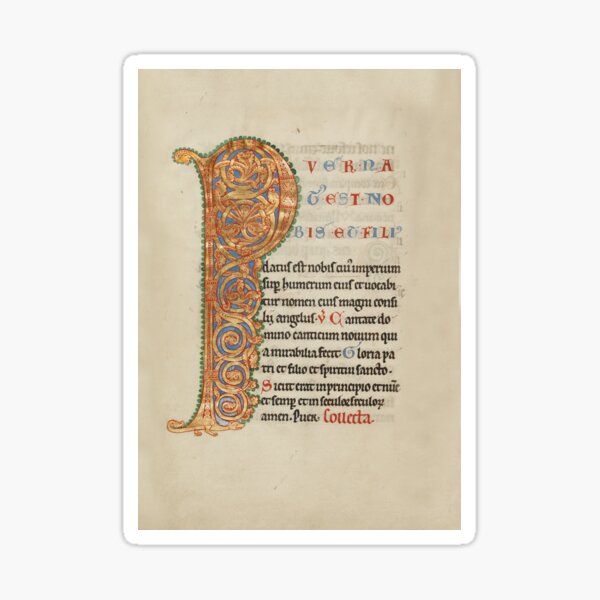 P VER NA
T EST · NO
BIS ET FILIꝰ
datus est nobis cuiꝰ imperium
suꝑ humerum eius et uocabi
tur nomen eius magni consi
lii angelus · V̇ Cantate do
mino canticum nouum qui
a mirabilia fecit Gloria pa
tri et filio et spiritui sancto.
Sicut erat in principio et nūc
et semꝑ et in seculoꝝ seculoꝝ
amen. Puer. Collecta.